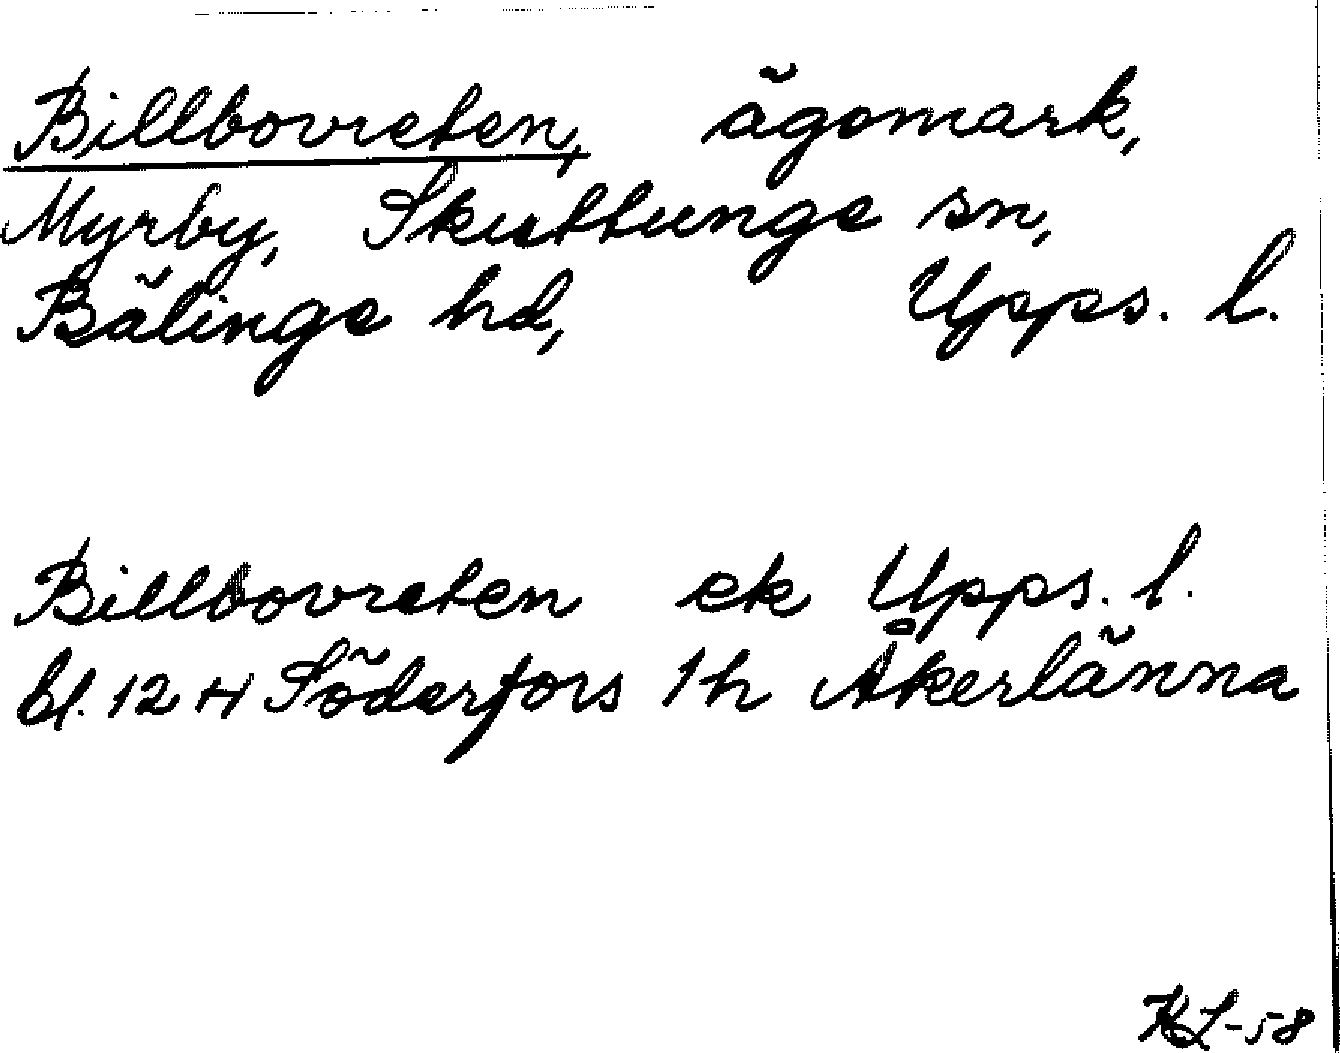 Billbovreten, ägomark,
Myrby, Skuttunge sn,
Bälinge hd, Upps. l.
Billbovreten ek Upps. l.
bl. 12 H Söderfors 1h Åkerlänna
KL-58